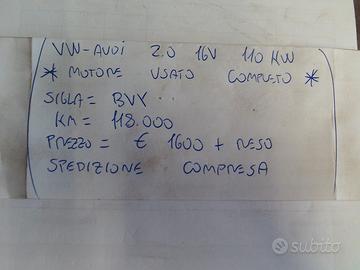 VW-AUDI 2.0 16V 110 KW
* MOTORE USATO COMPLETO *
SIGLA = BVY
KM = 118.000
PREZZO = € 1600 + RESO
SPEDIZIONE COMPRESA
subito